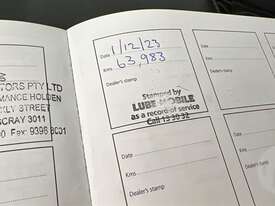 Date 1/12/23
Kms 63,983
Dealer's stamp
Stamped by
LUBE MOBILE
as a record of service
Call 13 30 32
TORS PTY LTD
MANCE HOLDEN
KLY STREET
SCRAY 3011
Fax: 9396
Date
Kms
Dealer's stamp
Date
Kms
Dealer's stamp
Date
Kms